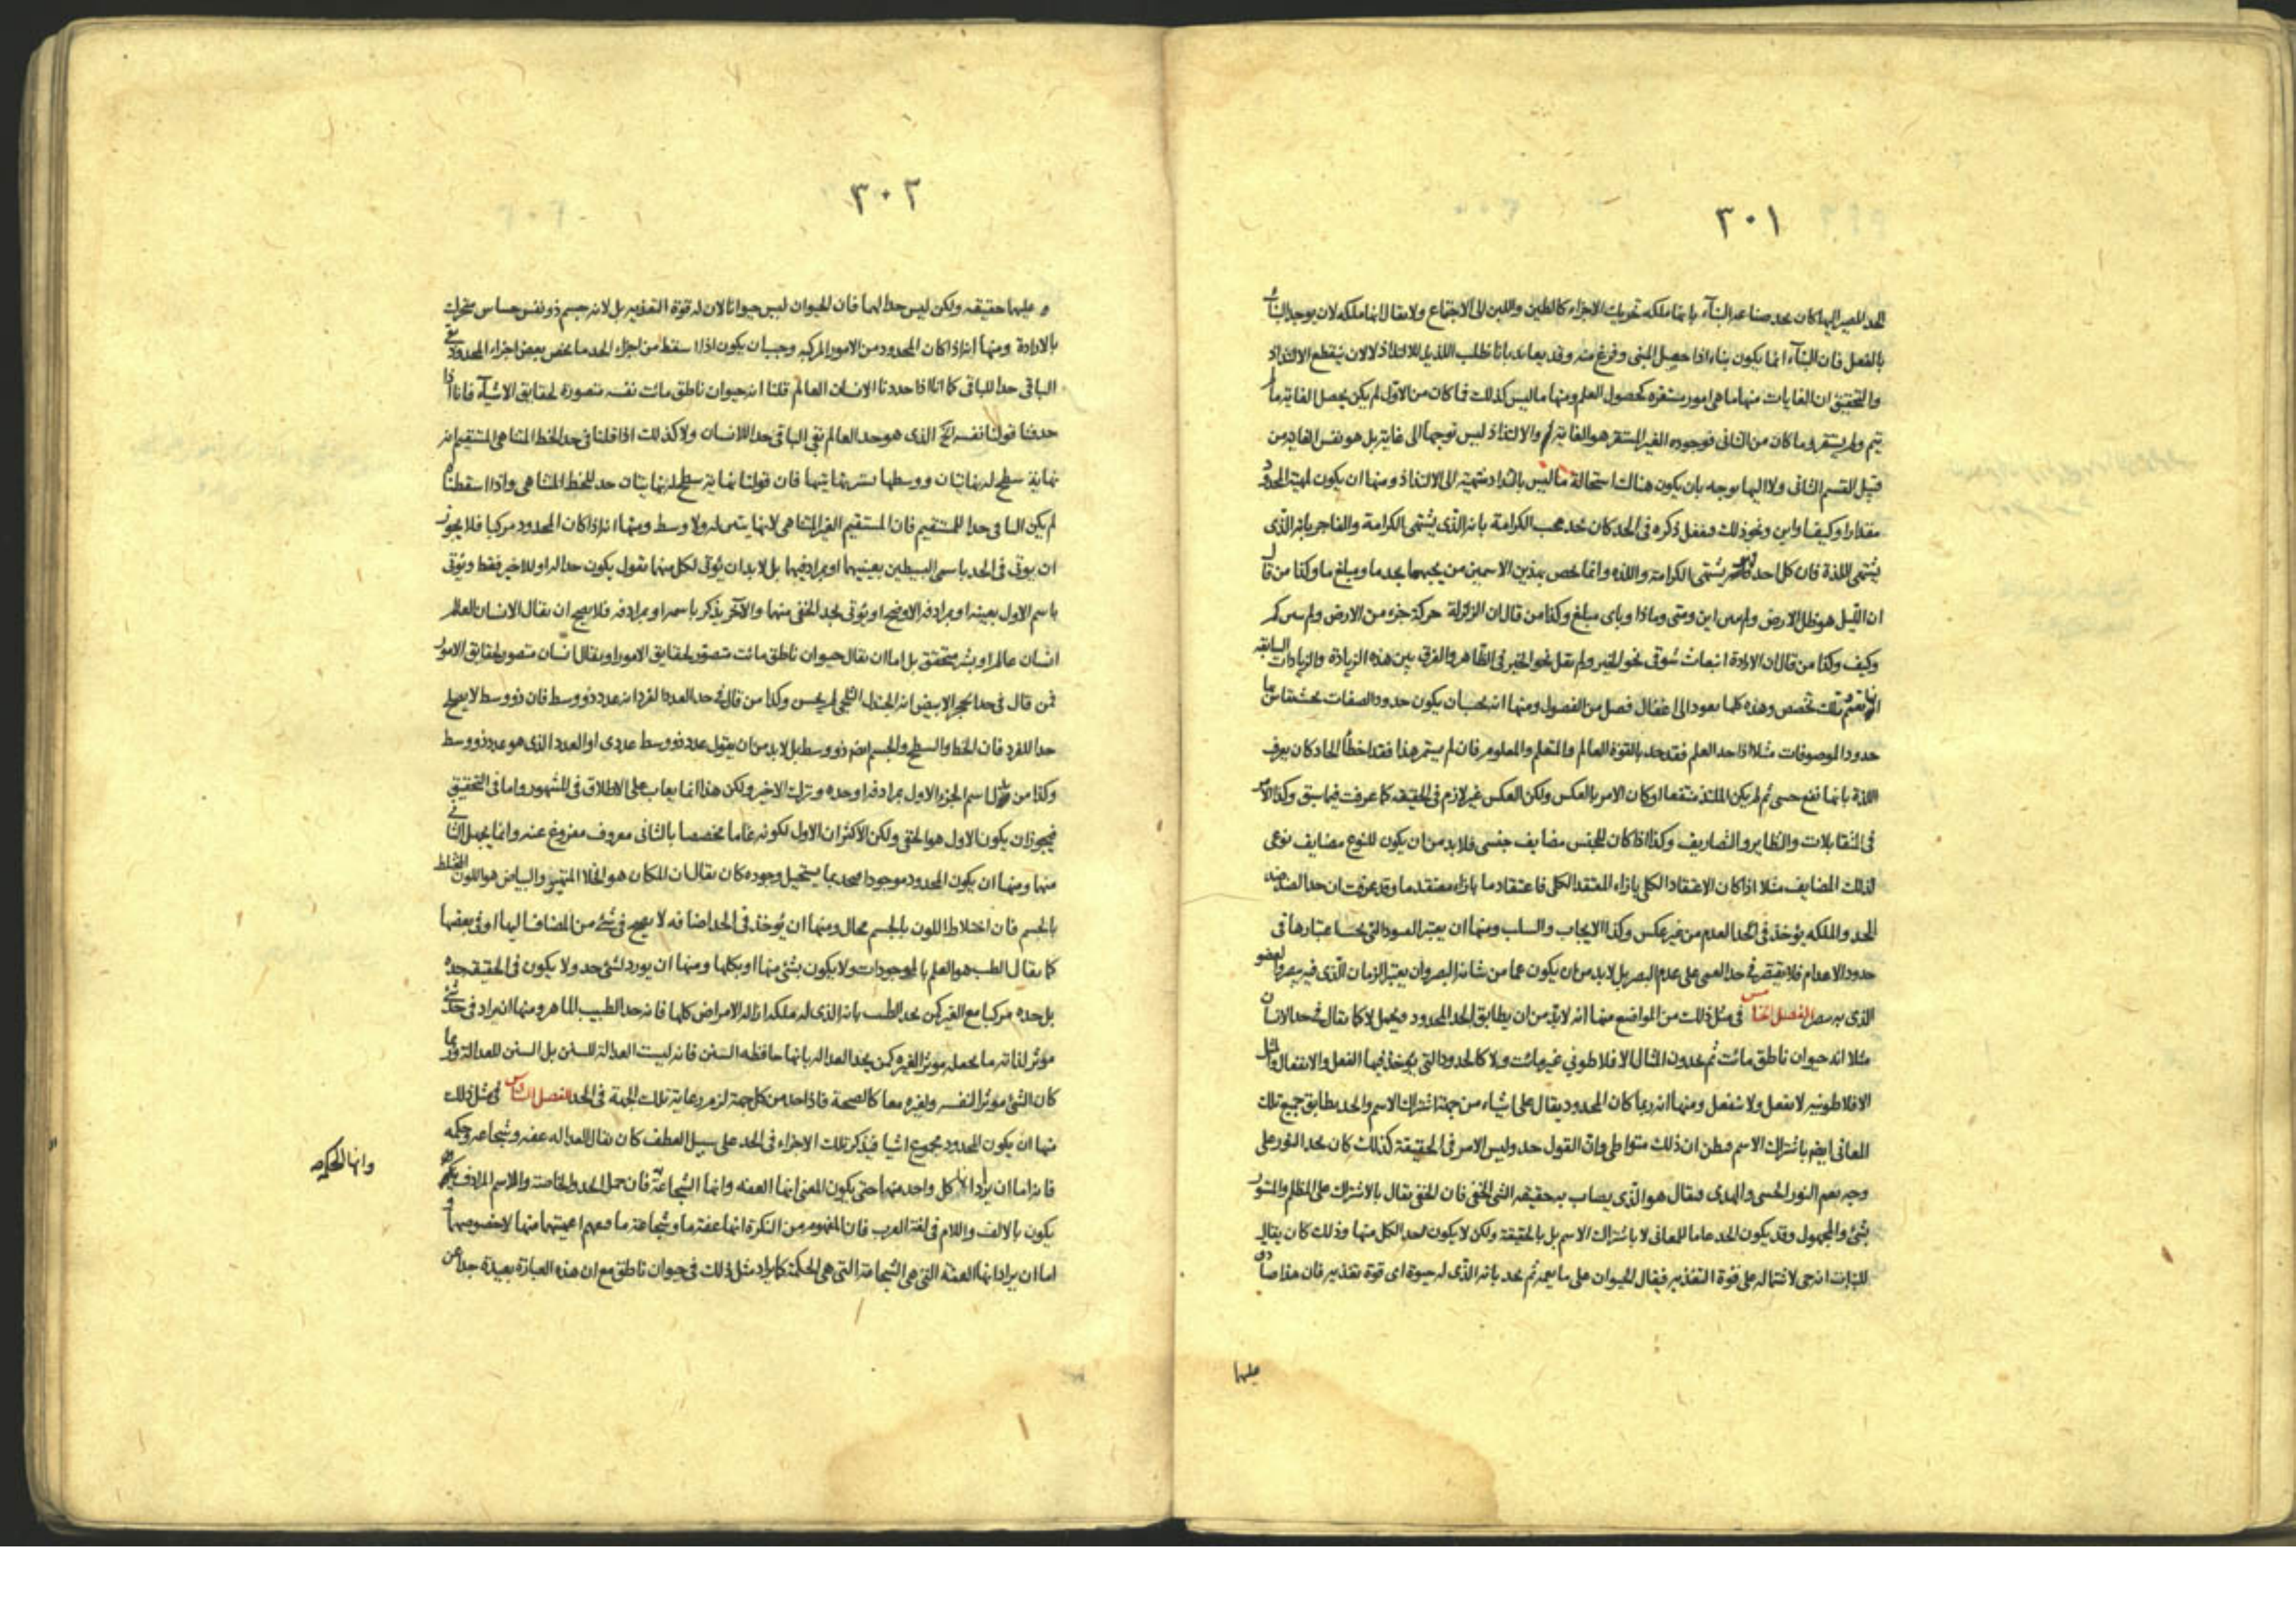 ٣٠١
بالفعل فان البنآء انما يكون بناء اذا حصل المبنى وفرغ منه وقد يعاند بانا نطلب اللذيذ للالتذاذ لا لان ينقطع الالتذاذ
والتحقيق ان الغايات منها ما هى امور مستقره كحصول العلم ومنها ما ليس كذلك فما كان من الاول لم يكن يحصل الغاية ما لم
يتم ولم يستقر وما كان من الثانى فوجوده الغير المستقر هو الغاية والالتذاذ ليس توجها الى غاية بل هو نفس الغاية من
قبيل القسم الثانى ومنها ان يكون لمهية المحدود
مقدارا وكيفا واين ونحو ذلك فيغفل ذكره فى الحد كان يحد محب الكرامة بانه الذى يشتهى الكرامة والفاجر بانه الذى
يشتهى اللذة فان كل احد يشتهى الكرامة واللذه وانما خص بهذين الاسمين من يحبهما بحد ما ومبلغ ما وكذا من قال
ان الليل هو ظل الارض ولم يبين اين ومتى وماذا وباى مبلغ وكذا من قال ان الزلزلة حركة جزء من الارض ولم يبين كم
وكيف وكذا من قال ان الارادة انبعاث شوقى نحو الخير ولم يقل نحو الخير فى الظاهر والفرق بين هذه الزيادة والزيادات السابقه
تخصص وهذه كلها يعود الى اغفال فصل من الفصول ومنها انه يجب ان يكون حدود الصفات
حدود الموصوفات مثلا اذا حد العلم فقد حد بالقوة العالم والمتعلم والمعلوم فان لم يستمر هذا فقد اخطأ الحاد كان يعرف
اللذة بانها نفع حسى ثم لم يكن الملتذ منتفعا او كان الامر بالعكس ولكن العكس غير لازم فى الحقيقه كما عرفت فيما سبق وكذا الامر
فى المتقابلات والنظاير والتصاريف وكذا اذا كان للجنس مضايف جنسى فلا بد من ان يكون للنوع مضايف نوعى
لذلك المضايف مثلا اذا كان الاعتقاد الكلى بازاء المعتقد الكلى فاعتقاد ما بازاء معتقد ما وقد عرفت ان حد الضد ضد
الحد والملكه يؤخذ فى الحد العدم من غير عكس وكذا الايجاب والسلب ومنها ان يعتبر القيود التى يجب اعتبارها فى
حدود الاعدام فلا يقتصر فى حد العمى على عدم البصر بل لا بد من ان يكون عما من شانه البصر وان يعتبر الزمان الذى فيه يبصر والعضو
الذى به يبصر الفصل الخامس فى مثل ذلك من المواضع منها انه لا بد من ان يطابق الحد المحدود ويحمل لا كما يقال فى حد الانسان
مثلا انه حيوان ناطق مائت ثم يحدون المثال الافلاطونى غير مائت ولا كالحدود التى يوخذ فيها الفعل والانفعال
الافلاطونيه لا يفعل ولا ينفعل ومنها انه ربما كان المحدود يقال على اشياء من جهة اشتراك الاسم والحد يطابق جميع تلك
المعانى ايضا باشتراك الاسم فيظن ان ذلك متواطى وان القول حد وليس الامر فى الحقيقة كذلك كان يحد النور على
وجه يعم النور الحسى والهدى فيقال هو الذى يصاب به حقيقه الشئ الخفى فان الخفى يقال بالاشتراك على المظلم والمستور
بشئ والمجهول وقد يكون الحد عاما للمعانى لا باشتراك الاسم بل بالحقيقة ولكن لا يكون لحد الكل منها وذلك كان يقال
للنبات انه حى لاشتماله على قوة التغذيه فيقال للحيوان على ما يعمه ثم يحد بانه الذى له حيوة اى قوة تغذيه فان هذا صادق
عليها
٣٠٢
عليهما حقيقه ولكن ليس حدا لهما فان الحيوان ليس حيوانا لان له قوة التغذيه بل لانه جسم ذو نفس حساس متحرك
بالارادة ومنها انه اذا كان المحدود من الامور المركبه وجب ان يكون اذا اسقط من اجزاء الحد ما يخص بعض اجزاء المحدود بقى
الباقى حدا للباقى كما انا اذا حددنا الانسان العالم قلنا انه حيوان ناطق مائت نفسه متصورة لحقايق الاشيآء فانا اذا
حذفنا قولنا نفسه الخ الذى هو حد العالم بقى الباقى حدا للانسان ولا كذلك اذا قلنا فى حد الخط المتناهى المستقيم انه
نهاية سطح له نهايتان ووسطها يستر نهايتيها فان قولنا نهاية سطح له نهايتان حد للخط المتناهى واذا اسقطناه
لم يكن الباقى حدا للمستقيم فان المستقيم الغير المتناهى لا نهايتين له ولا وسط ومنها انه اذا كان المحدود مركبا فلا يجوز
ان يوتى فى الحد باسمى البسيطين بعينهما او بمرادفيهما بل لا بد ان يؤتى لكل منهما بقول يكون حدا له او للاخير فقط ويؤتى
باسم الاول بعينه او بمرادفه الاوضح او يؤتى بحد الخفى منهما والآخر يذكر باسمه او بمرادفه فلا يصح ان يقال الانسان العالم
انسان عالم او بشر متحقق بل اما ان يقال حيوان ناطق مائت متصور لحقايق الامور او يقال انسان متصور لحقايق الامور
فمن قال فى حد الحجر الابيض انه الجندل الثلجى لم يحسن وكذا من قال فى حد العدد الفرد انه عدد ذو وسط فان ذو وسط لا يصلح
حدا للفرد فان الخط والسطح والجسم ايضا ذو وسط بل لا بد من ان يقول عدد ذو وسط عددى او العدد الذى هو عدد ذو وسط
وكذا من بدل اسم الجزء الاول بمرادفه او حده وترك الاخير ولكن هذا انما يعاب على الاطلاق فى المشهور واما فى التحقيق
فيجوز ان يكون الاول هو الخفى ولكن الاكثر ان الاول لكونه عاما مخصصا بالثانى معروف مفروغ عنه وانما يجهل الثانى
منهما ومنها ان يكون المحدود موجودا فيحد بما يستحيل وجوده كان يقال ان المكان هو الخلا والبياض هو اللون المختلط
بالجسم فان اختلاط اللون بالجسم محال ومنها ان يؤخذ فى الحد اضافه لا يصح فى شئ من المضاف اليها او فى بعضها
كما يقال الطب هو العلم بالموجودات ولا يكون بشئ منها او بكلها ومنها ان يورد لشئ حد ولا يكون فى الحقيقه حده
بل حده مركبا مع الغير كمن يحد الطب بانه الذى له ملكه ازاله الامراض كلها فانه حد الطبيب الماهر ومنها ان يراد فى حد شئ
موثر لذاته ما يجعله موثر الغيره كمن يحد العداله بانها حافظه السنن فانه ليست العدالة للسنن بل السنن للعدالة وربما
كان الشئ موثر النفسه ولغيره معا كالصحة فاذا حد من كل جهة لزم رعاية تلك الجهة فى الحد الفصل السادس فى مثل ذلك
منها ان يكون المحدود مجموع اشيا فيذكر تلك الاجزاء فى الحد على سبيل العطف كان يقال للعداله عفه وشجاعه وحكمه
فانه اما ان يراد انها كل واحد منها حتى يكون المعنى انها العفه وانها الشجاعة فان حمل الحد والخاصة والاسم المرادف
وانها الحكمه
يكون بالالف واللام فى لغة العرب فان المفهوم من النكرة انها عفة ما وشجاعة ما فيفهم اعميتها منها لا خصوصها
اما ان يراد انها العفة التى هى الشجاعة التى هى الحكمة كما يراد مثل ذلك فى حيوان ناطق مع ان هذه العبارة بعيدة جدا عن